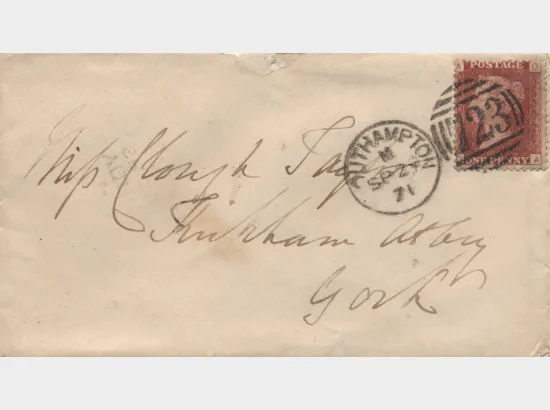 POSTAGE
723
ONE PENNY
SOUTHAMPTON
M
SP 2
71
Miss Clough Taylor
Kirkham Abbey
York